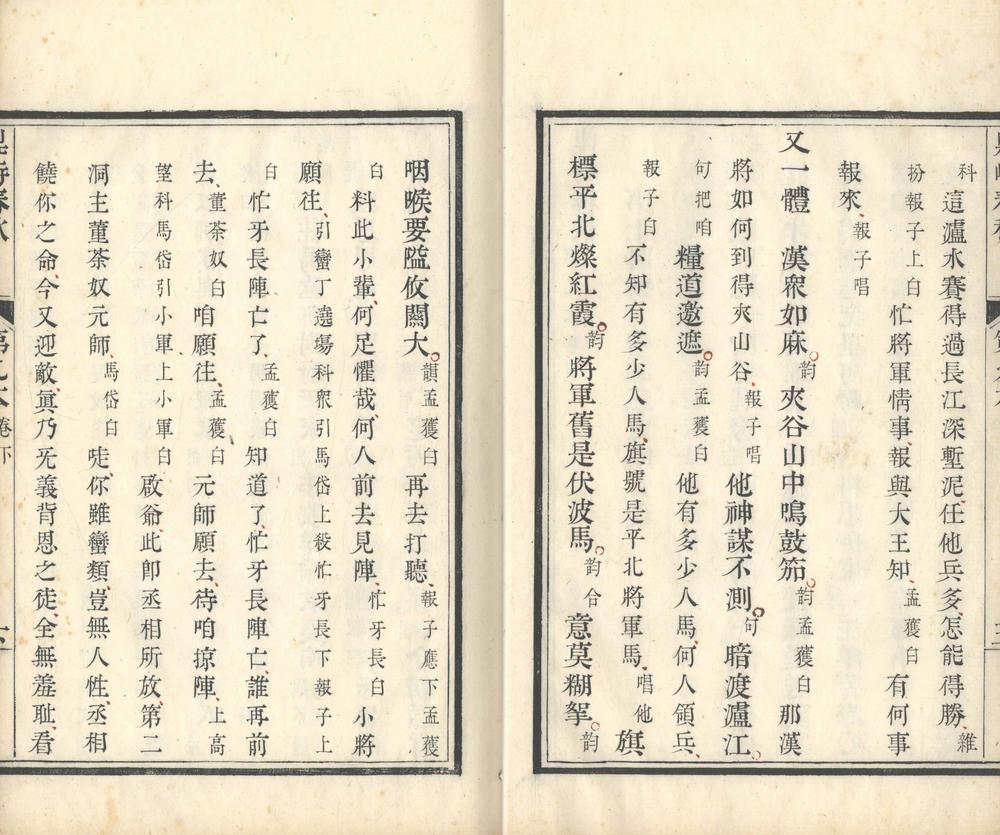 科這瀘水賽得過長江深塹泥任他兵多怎能得勝雜
扮報子上白忙將軍情事報與大王知孟獲白有何事
報來報子唱
又一體 漢衆如麻韵夾谷山中鳴鼓笳韵孟獲白那漢
將如何到得夾山谷報子唱他神謀不測句暗渡瀘江
句把咱糧道邀遮韵孟獲白他有多少人馬何人領兵
報子白不知有多少人馬旗號是平北將軍馬唱他旗
標平北燦紅霞韵將軍舊是伏波馬韵合意莫糊拏韵
咽喉要隘攸關大韻孟獲白再去打聽報子應下孟獲
白料此小輩何足懼哉何人前去見陣忙牙長白小將
願往引蠻丁遶場科衆引馬岱上殺忙牙長下報子上
白忙牙長陣亡了孟獲白知道了忙牙長陣亡誰再前
去董荼奴白咱願往孟獲白元師願去待咱掠陣上高
望科馬岱引小軍上小軍白啟爺此卽丞相所放第二
洞主董荼奴元師馬岱白唗你雖蠻類豈無人性丞相
饒你之命今又迎敵眞乃旡義背恩之徒全無羞耻看
春秋
卷下